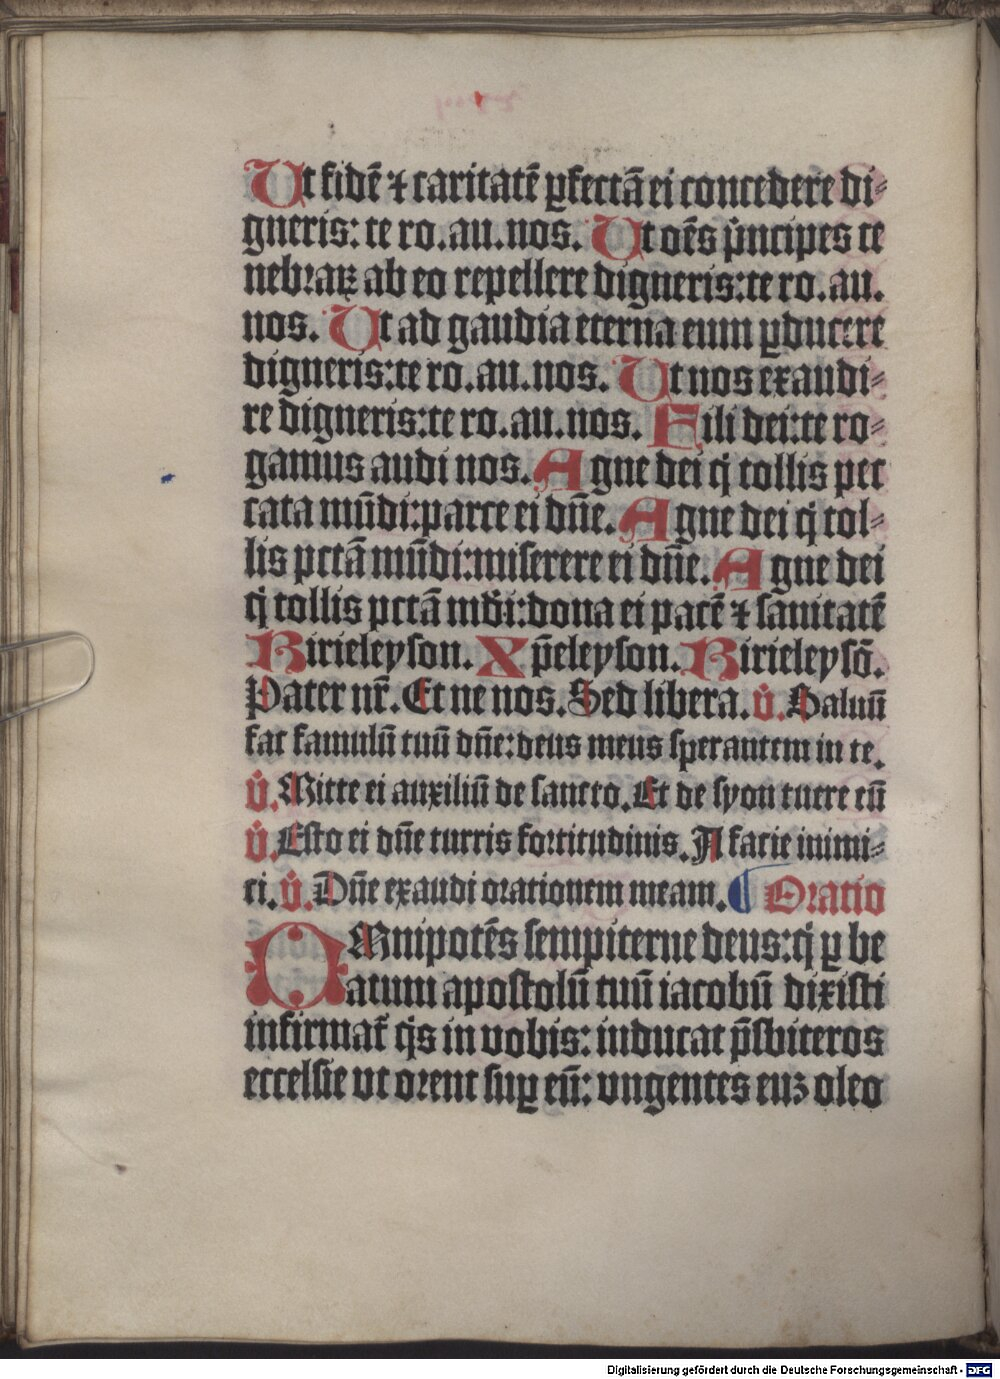 Ut fidē ⁊ caritatē ꝑfectā ei concedere di⸗
gneris: te ro. au. nos. Ut oēs pͥncipes te
nebꝛaꝝ ab eo repellere digneris: te ro. au.
nos. Ut ad gaudia eterna eum ꝑducere
digneris: te ro. au. nos. Ut nos exaudi⸗
re digneris: te ro. au. nos. Fili dei: te ro⸗
gamus audi nos. Agne dei q̇ tollis pec
cata mūdi: parce ei dn̄e. Agne dei q̇ tol⸗
lis pctā mūdi: miserere ei dn̄e. Agne dei
q̇ tollis pctā mūdi: dona ei pacē ⁊ sanitatē
Kirieleyson. Xp̄eleyson. Kirieleysō.
Pater nr̄. Et ne nos. Sed libera. v̾. Saluū
fac famulū tuū dn̄e: deus meus sperantem in te.
v̾. Mitte ei auxiliū de sancto. Et de syon tuere eū
v̾. Esto ei dn̄e turris foꝛtitudinis. A facie inimi⸗
ci. v̾. Dn̄e exaudi oꝛationem meam. ¶ Oꝛatio
OMnipotēs sempiterne deus: q̇ ꝑ be
atum apostolū tuū iacobū dixisti
infirmat᷑ q̇s in vobis: inducat p̄sbiteros
ecclesie vt oꝛent suꝑ eū: vngentes euꝫ oleo
Digitalisierung gefördert durch die Deutsche Forschungsgemeinschaft - DFG